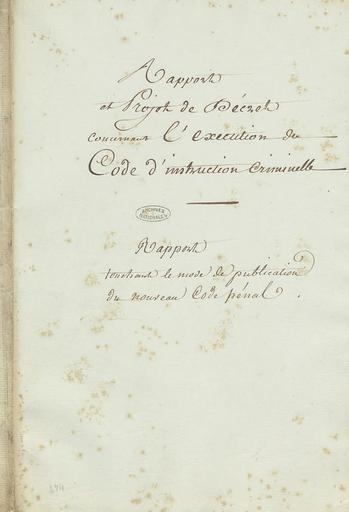 Rapport
et Projet de Décret
concernant l'execution du
Code d'instruction Criminelle
ARCHIVES
NATIONALES
Rapport
touchant le mode de publication
du nouveau Code pénal.